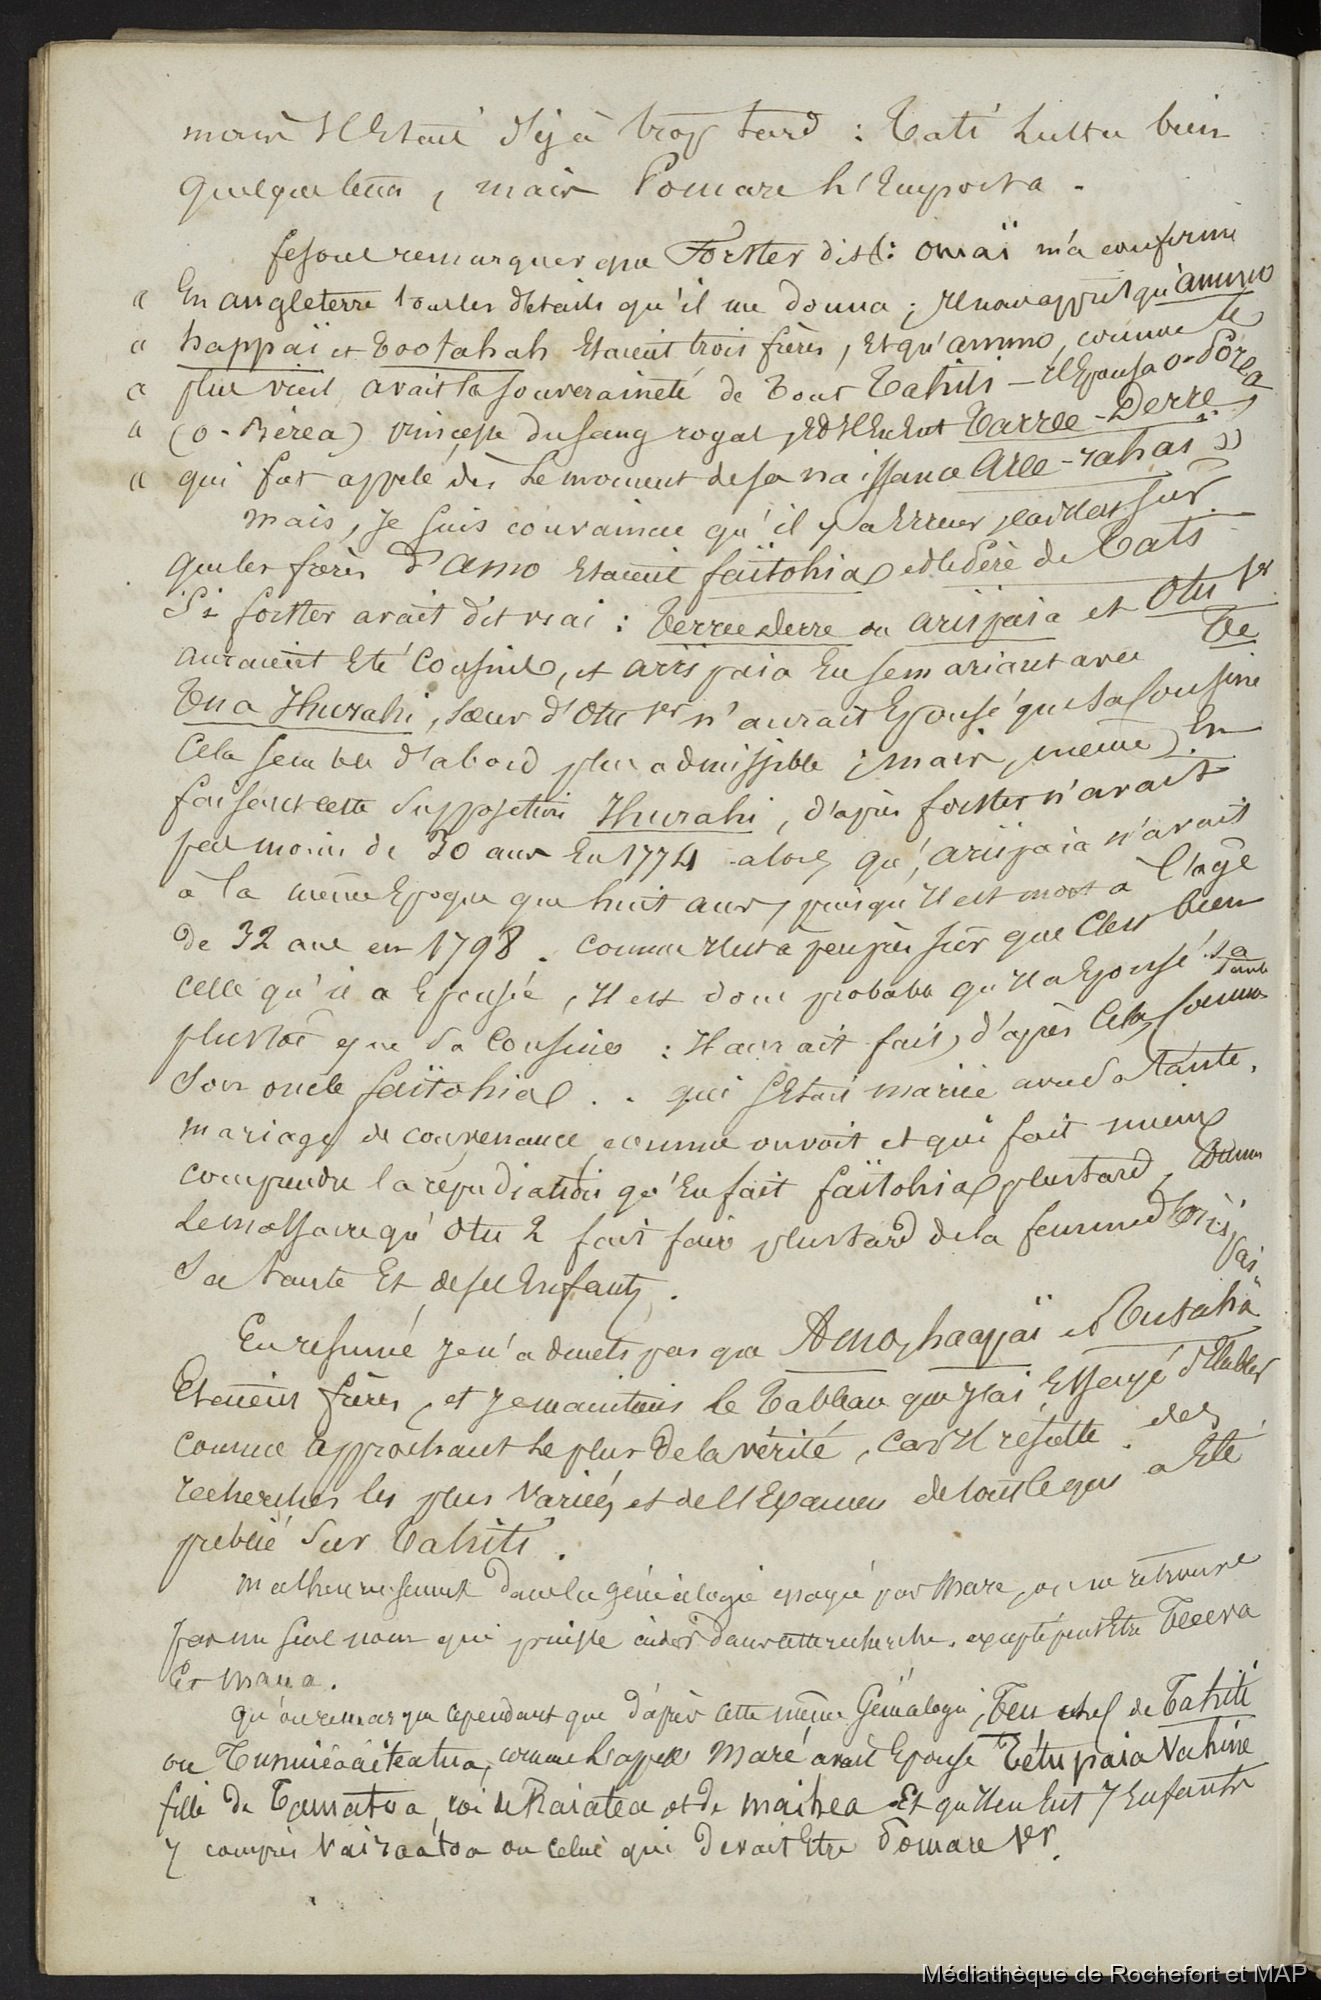 mais il était déjà trop tard : Tati lutta bien
quelque tems, mais Pomare l'emporta.
Je ferai remarquer que Forster dit : Omaï m'a confirmé
" En angleterre tous les détails qu'il me donna ; il nous apprit qu'ammo
" happaï et Tootahah étaient trois frères, et qu'ammo, comme le
" plus vieil avait la souveraineté de tout Tahiti – il épousa o-Pórea
" (o-Béréa) princesse du sang royal, et il en eut Tarree-Derre,
" qui fut appelé dès le moment de sa naissance Aree-rahai "
mais, je suis convaincu qu'il y a erreur, car il est sûr
que les frères d'Amo étaient faïtohia et le Père de Tati
Si forster avait dit vrai : Terree derre ou ariipaia et Otu 1er
auraient été cousins, et arii paia en se mariant avec Te
Tua Hurahi, sœur d'Otu 1er n'aurait épousé que sa cousine
Cela semble d'abord plus admissible ; mais, même en
faisant cette supposition Hurahi, d'après forster n'avait
pas moins de 30 ans en 1774 alors qu'ariipaia n'avait
à la même époque que huit ans, puisqu'il est mort à l'âge
de 32 ans en 1798. comme il est à peu près sûr que c'est bien
celle qu'il a épousée, il est donc probable qu'il a épousé sa tante
plustôt que sa cousine : il aurait fait, d'après cela, comme
son oncle faïtohia .. qui s'était marié avec sa tante,
mariage de convenance, comme on voit et qui fait mieux
comprendre la répudiation qu'en fait faïtohia plustard, comme
le massacre qu'Otu 2 fait faire plustard de la femme d'Ariipaia
sa tante et de ses enfants.
En résumé je n'admets pas que Amo, haapaï et Tutahà
étaient frères, et je maintiens le Tableau que j'ai essayé d'établir
comme approchant le plus de la vérité, car il résulte des
recherches les plus variées et de l'examen de tout ce qui a été
publié sur Tahiti.
malheureusement dans la généalogie essayée par Mare, on ne retrouve
pas un seul nom qui puisse aider dans cette recherche, excepté peut être Teeeva
et Maua.
qu'on remarque cependant que d'après cette même Généalogie, Teu chef de Tahiti
ou Tunuieaaiteatua, comme l'appelle Maré avait épousé Tetupaia Vahine
fille de Tamatoa, roi de Raiatea et de Maihea et qu'il en eut 7 enfants
y compris Vairaatoa ou celui qui devait être Pomare 1er.
Médiathèque de Rochefort et MAP